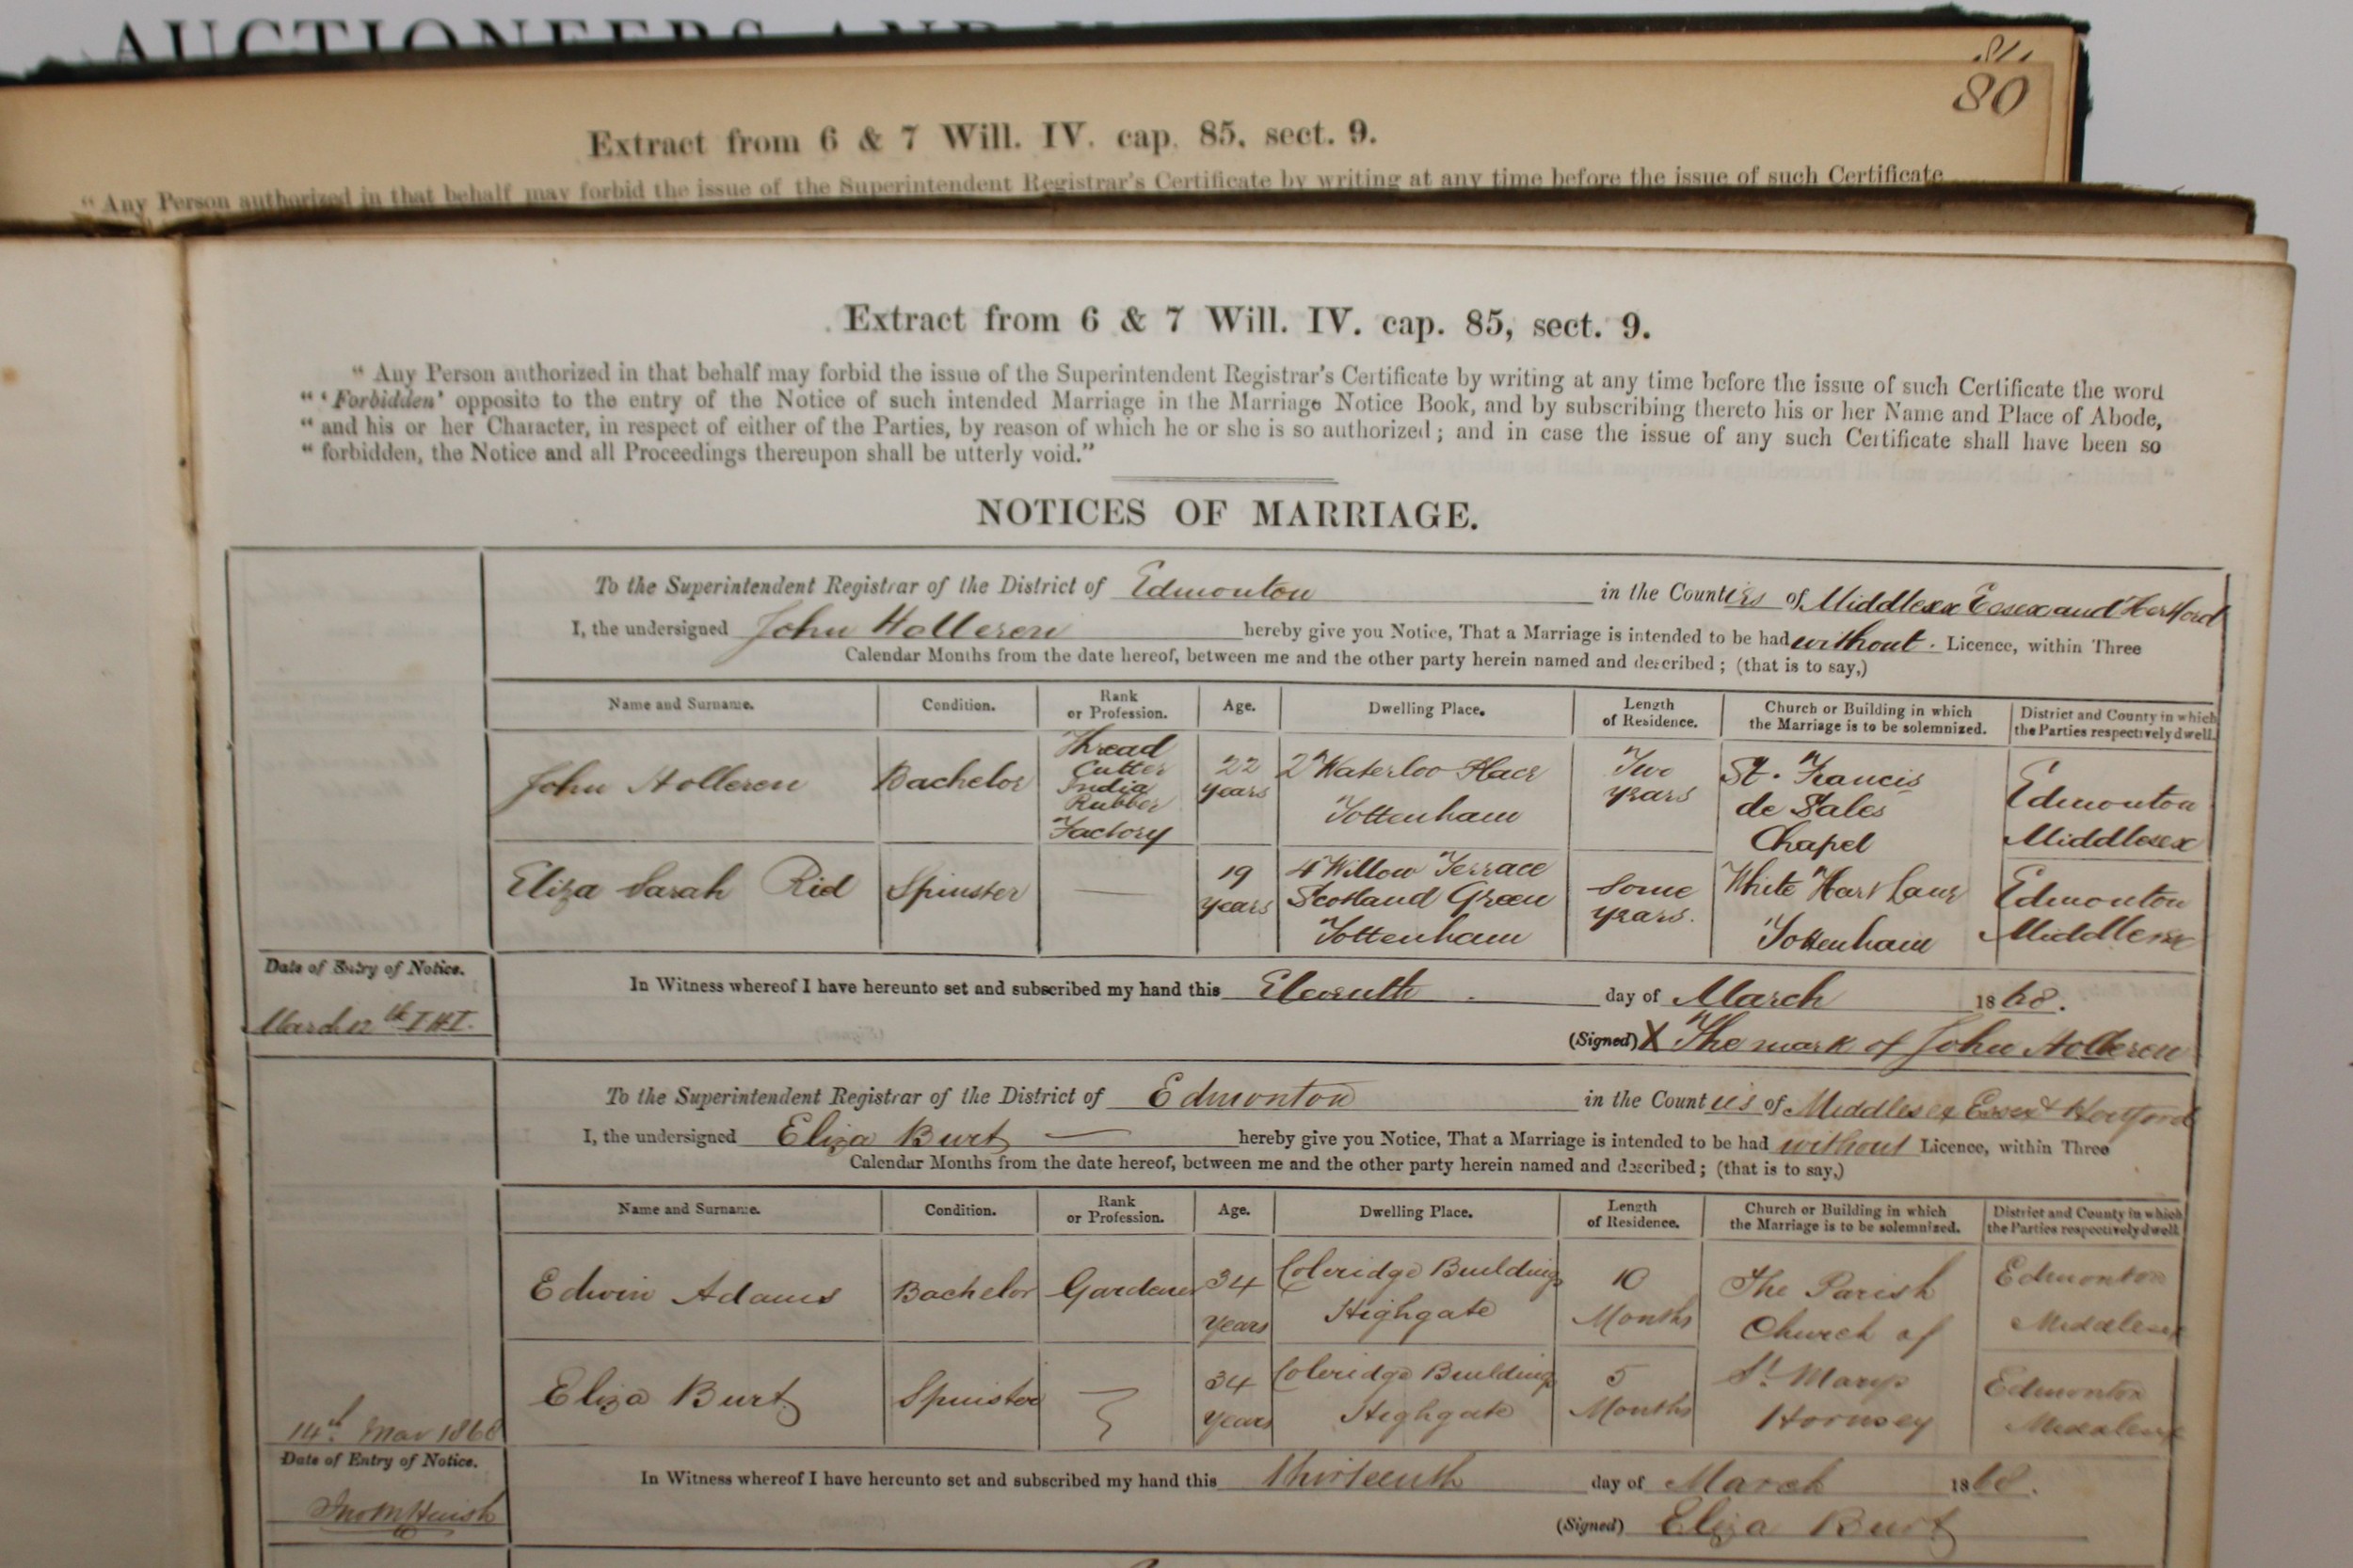 AUCTIONEERS AND
80
Extract from 6 & 7 Will. IV. cap. 85, sect. 9.
“ Any Person authorized in that behalf may forbid the issue of the Superintendent Registrar's Certificate by writing at any time before the issue of such Certificate
Extract from 6 & 7 Will. IV. cap. 85, sect. 9.
“ Any Person authorized in that behalf may forbid the issue of the Superintendent Registrar's Certificate by writing at any time before the issue of such Certificate the word
“ ‘ Forbidden’ opposite to the entry of the Notice of such intended Marriage in the Marriage Notice Book, and by subscribing thereto his or her Name and Place of Abode,
“ and his or her Character, in respect of either of the Parties, by reason of which he or she is so authorized ; and in case the issue of any such Certificate shall have been so
“ forbidden, the Notice and all Proceedings thereupon shall be utterly void.”
NOTICES OF MARRIAGE.
To the Superintendent Registrar of the District of Edmonton in the Counties of Middlesex Essex and Hertford
I, the undersigned John Holleren hereby give you Notice, That a Marriage is intended to be had without Licence, within Three
Calendar Months from the date hereof, between me and the other party herein named and described ; (that is to say,)
Name and Surname. Condition. Rank or Profession. Age. Dwelling Place. Length of Residence. Church or Building in which the Marriage is to be solemnized. District and County in which the Parties respectively dwell.
John Holleren Bachelor Thread Cutter India Rubber Factory 22 years 2 Waterloo Place Tottenham Two years St. Francis de Sales Chapel Edmonton Middlesex
Eliza Sarah Rid Spinster 19 years 4 Willow Terrace Scotland Green Tottenham Some years. White Hart Lane Tottenham Edmonton Middlesex
Date of Entry of Notice.
March 12th
In Witness whereof I have hereunto set and subscribed my hand this Eleventh day of March 1868.
(Signed) X The mark of John Holleren
To the Superintendent Registrar of the District of Edmonton in the Counties of Middlesex Essex & Hertford
I, the undersigned Eliza Burt hereby give you Notice, That a Marriage is intended to be had without Licence, within Three
Calendar Months from the date hereof, between me and the other party herein named and described ; (that is to say,)
Name and Surname. Condition. Rank or Profession. Age. Dwelling Place. Length of Residence. Church or Building in which the Marriage is to be solemnized. District and County in which the Parties respectively dwell.
Edwin Adams Bachelor Gardener 34 years Coleridge Buildings Highgate 10 Months The Parish Church of Edmonton Middlesex
Eliza Burt Spinster 34 years Coleridge Buildings Highgate 5 Months St. Marys Hornsey Edmonton Middlesex
14th Mar 1868
Date of Entry of Notice.
In Witness whereof I have hereunto set and subscribed my hand this thirteenth day of March 1868.
(Signed) Eliza Burt